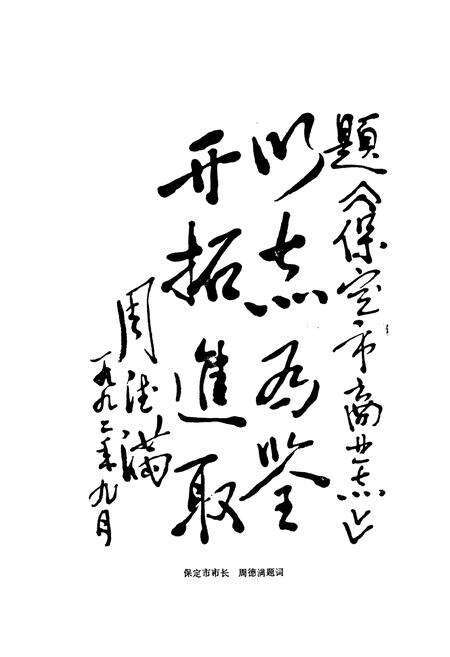 题《保定市商业志》
以志为鉴
开拓進取
周德满
一九九二年九月
保定市市长 周德满题词